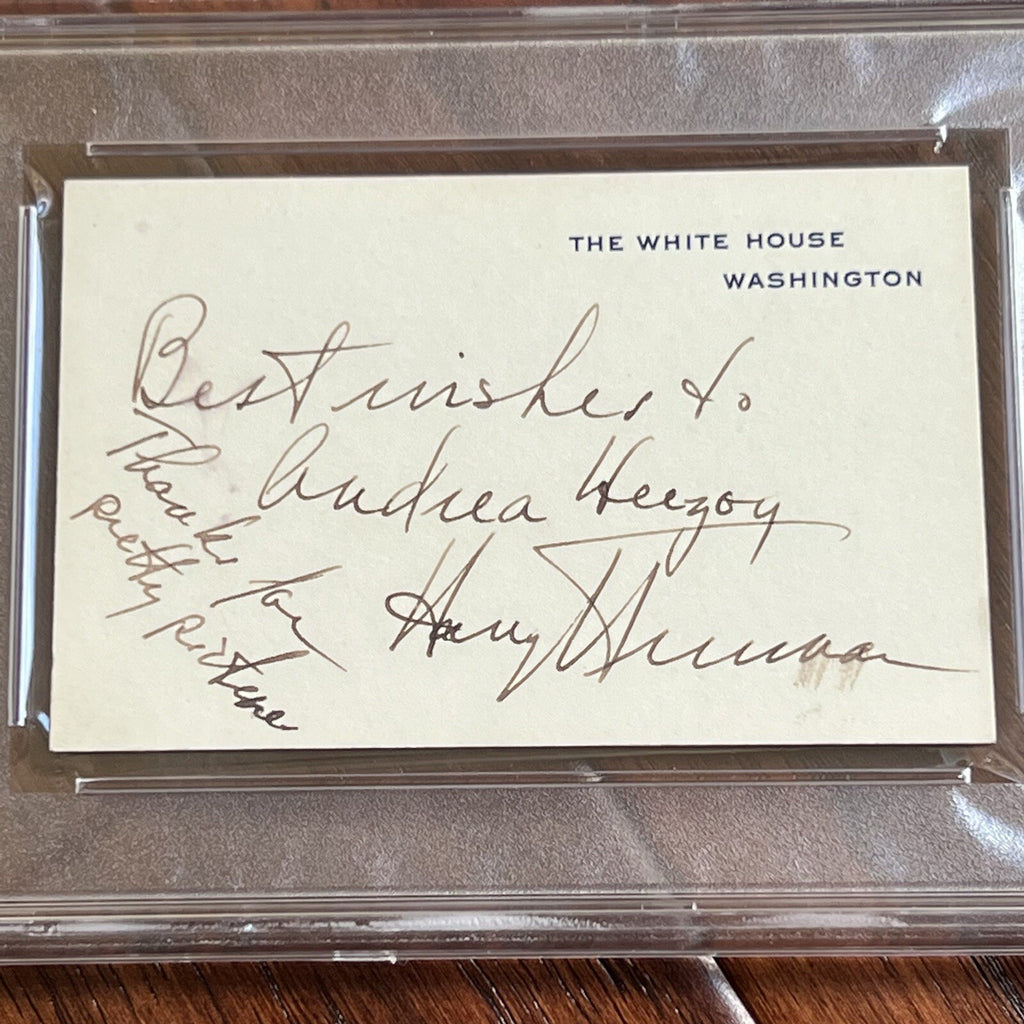 THE WHITE HOUSE
WASHINGTON
Best wishes to
Andrea Herzog
Harry Truman
Thanks for
pretty picture